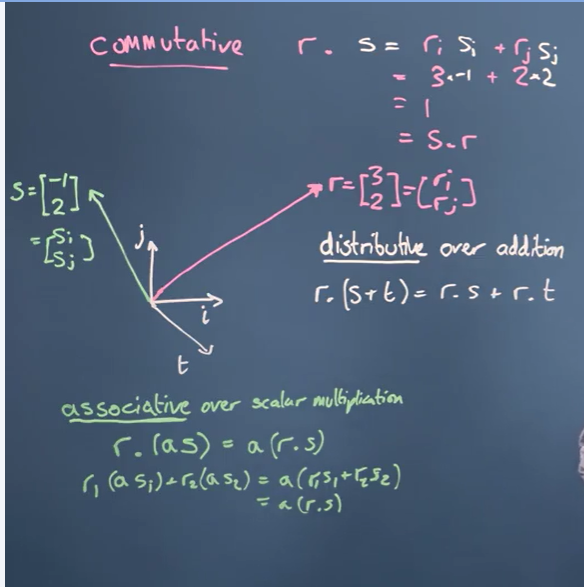 commutative r. s = rᵢ sᵢ + rⱼ sⱼ
= 3·-1 + 2·2
= 1
= s.r
s=[-1 2]
=[sᵢ sⱼ]
r=[3 2]=[rᵢ rⱼ]
j
i
t
distributive over addition
r.(s+t) = r.s + r.t
associative over scalar multiplication
r.(as) = a(r.s)
r₁(a s₁)+r₂(a s₂) = a(r₁s₁+r₂s₂)
= a(r.s)